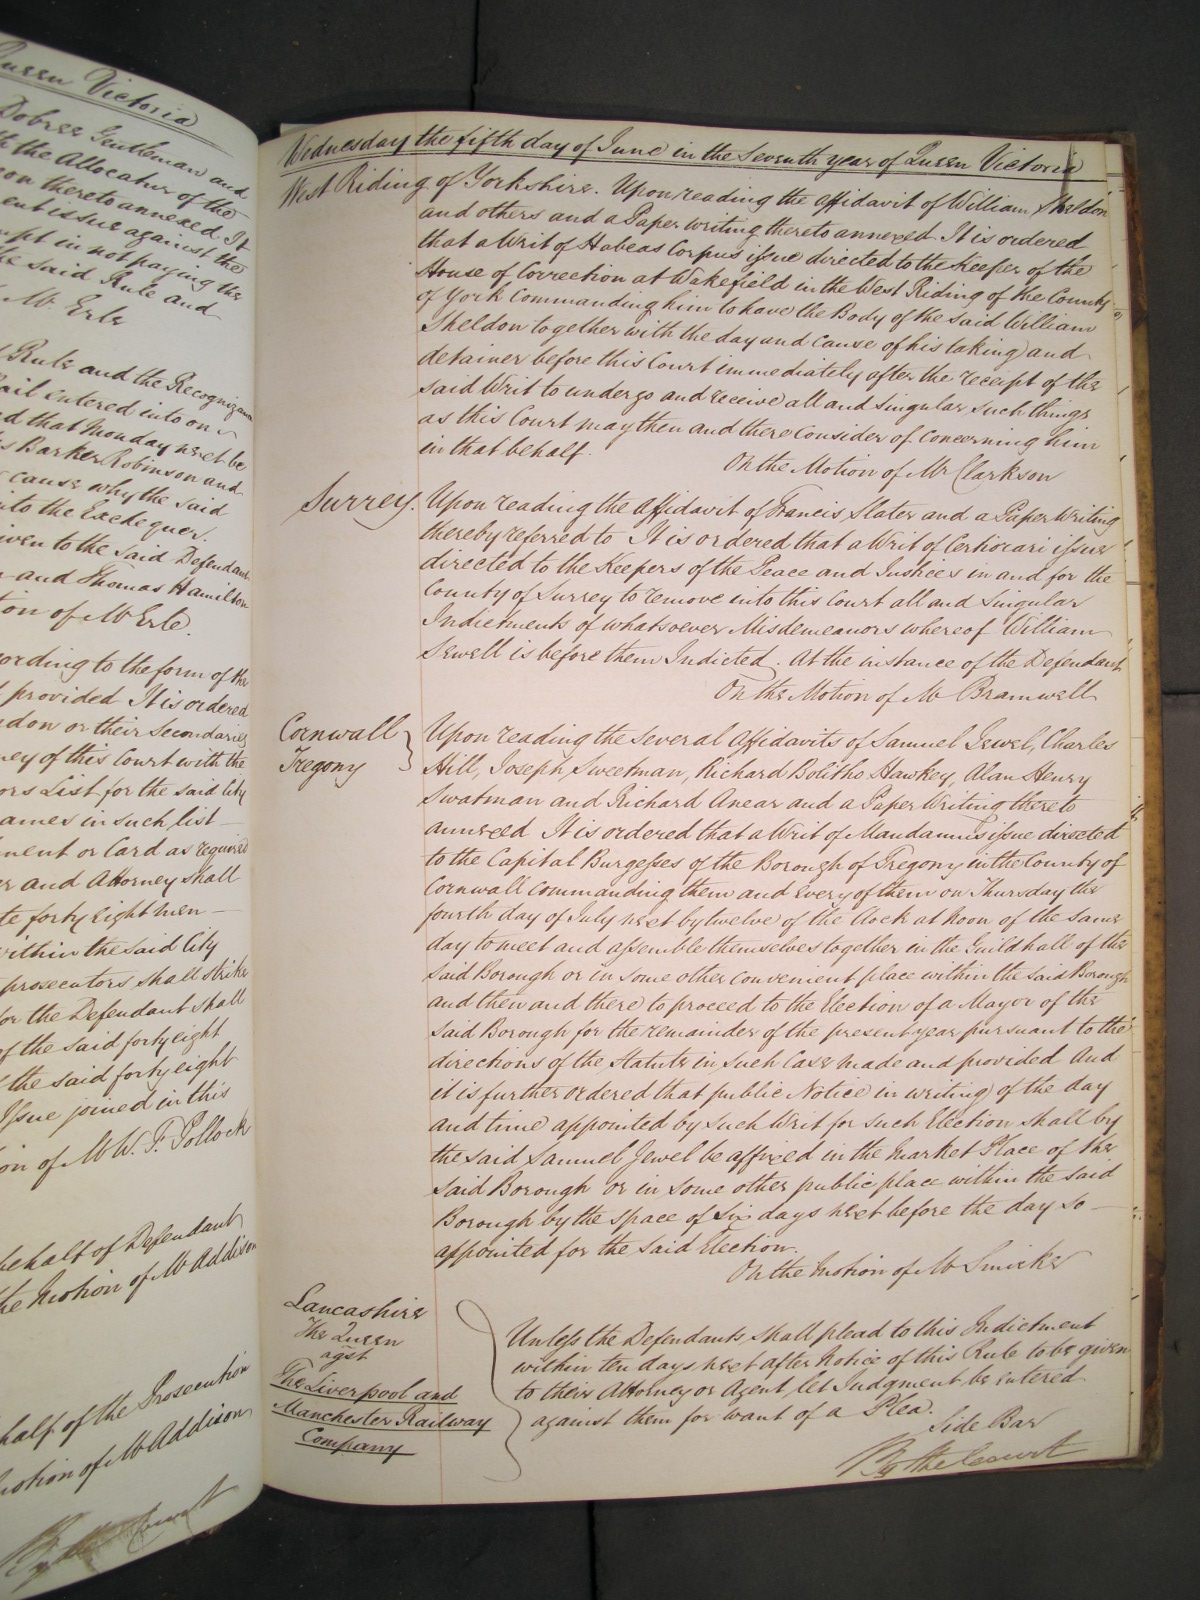 Queen Victoria
Dobree Gentleman and
the Allocatur of the
thereto annexed It
issue against the
in not paying the
said Rule and
Mr. Erle
Rule and the Recognizance
Bail entered into on
that Monday next be
Barker Robinson and
cause why the said
into the Exchequer.
given to the said Defendant
and Thomas Hamilton
of Mr Erle.
according to the form of the
provided It is ordered
or their Secondaries
of this Court with the
List for the said City
names in such list
or Card as required
and Attorney shall
forty Eight men
within the said City
prosecutors shall strike
for the Defendant shall
of the said forty eight
the said forty eight
Issue joined in this
of Mr W. F. Pollock
behalf of Defendant
the Motion of Mr Addison
behalf of the Prosecution
Motion of Mr Addison
By the Court
Wednesday the fifth day of June in the Seventh year of Queen Victoria
West Riding of Yorkshire. Upon reading the Affidavit of William Sheldon
and others and a Paper writing thereto annexed It is ordered
that a Writ of Habeas Corpus issue directed to the Keeper of the
House of Correction at Wakefield in the West Riding of the County
of York Commanding him to have the Body of the said William
Sheldon together with the day and cause of his taking and
detainer before this Court immediately after the receipt of the
said Writ to undergo and receive all and singular such things
as this Court may then and there consider of concerning him
in that behalf.
On the Motion of Mr Clarkson
Surrey. Upon reading the Affidavit of Francis Slater and a Paper Writing
thereby referred to It is ordered that a Writ of Certiorari issue
directed to the Keepers of the Peace and Justices in and for the
County of Surrey to remove into this Court all and singular
Indictments of whatsoever Misdemeanors whereof William
Sewell is before them Indicted. At the instance of the Defendant
On the Motion of Mr Bramwell
Cornwall
Tregony
Upon reading the several Affidavits of Samuel Jewel, Charles
Hill, Joseph Sweetman, Richard Bolitho Hawkey, Alan Henry
Swatman and Richard Anear and a Paper Writing thereto
annexed It is ordered that a Writ of Mandamus issue directed
to the Capital Burgesses of the Borough of Tregony in the County of
Cornwall Commanding them and every of them on Thursday the
fourth day of July next by twelve of the clock at noon of the same
day to meet and assemble themselves together in the Guildhall of the
said Borough or in some other convenient place within the said Borough
and then and there to proceed to the Election of a Mayor of the
said Borough for the remainder of the present year pursuant to the
directions of the Statute in such Case made and provided And
it is further ordered that public Notice in writing of the day
and time appointed by such Writ for such Election shall by
the said Samuel Jewel be affixed in the Market Place of the
said Borough or in some other public place within the said
Borough by the space of Six days next before the day so
appointed for the said Election.
On the Motion of Mr Smirke
Lancashire
The Queen
agst
The Liverpool and
Manchester Railway
Company
Unless the Defendants shall plead to this Indictment
within ten days next after Notice of this Rule to be given
to their Attorney or Agent let Judgment be entered
against them for want of a Plea.
Side Bar
By the Court